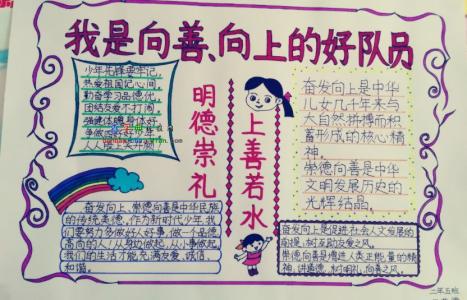 我是向善、向上的好队员
少年先锋要牢记,
热爱祖国记心间,
勤奋学习品德优,
团结友爱不打闹,
强健体魄身体好,
明德崇礼
上善若水
奋发向上是中华
儿女几千年来与
大自然拼搏而积
蓄形成的核心精
神。
崇德向善是中华
文明发展历史的
光辉结晶。
奋发向上、崇德向善是中华民族
的传统美德,作为新时代少年,我
们要努力多做好人好事,做一个品德
高尚的人!从身边做起,从小事做起,
我们的生活才能充满友爱、诚信、
和谐。
奋发向上是促进社会人文发展的
前提,树互助友爱之风。
崇德,向善是增进人类正能量的精
神,讲道德、树明礼、向善之风。
二年五班